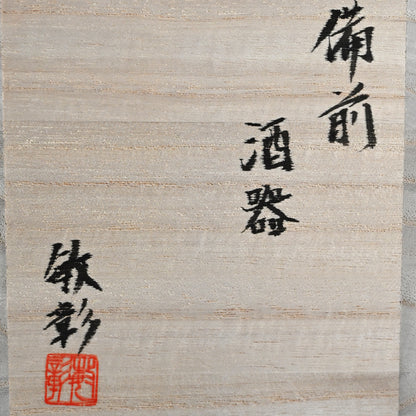 備前
酒器
敏彰